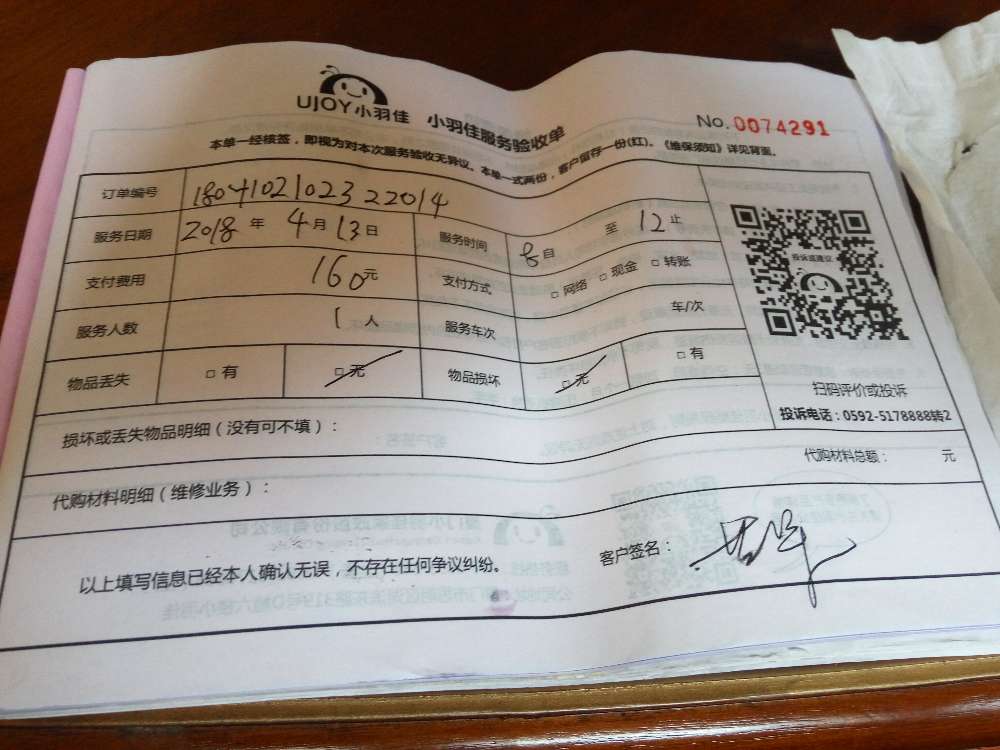 UJOY小羽佳 小羽佳服务验收单
No.0074291
本单一经核签，即视为对本次服务验收无异议。本单一式两份，客户留存一份(红)。《维保须知》详见背面。
订单编号 18041021023 22014
服务日期 2018 年 4 月 13 日 服务时间 8 自 至 12 止
支付费用 160 元 支付方式 □ 网络 □ 现金 □ 转账
服务人数 1 人 服务车次 车/次
物品丢失 □ 有 □ 无 物品损坏 □ 无 □ 有
投诉或建议
扫码评价或投诉
投诉电话：0592-5178888转2
损坏或丢失物品明细（没有可不填）：
代购材料明细（维修业务）：
代购材料总额： 元
以上填写信息已经本人确认无误，不存在任何争议纠纷。
客户签名：